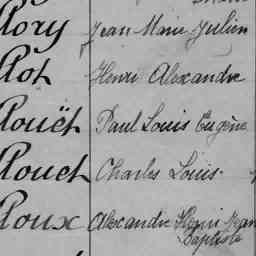 Rory Jean Marie Julien
Rot Henri Alexandre
Rouët Paul Louis Eugène
Rouet Charles Louis
Roux Alexandre Henri Jean
Baptiste